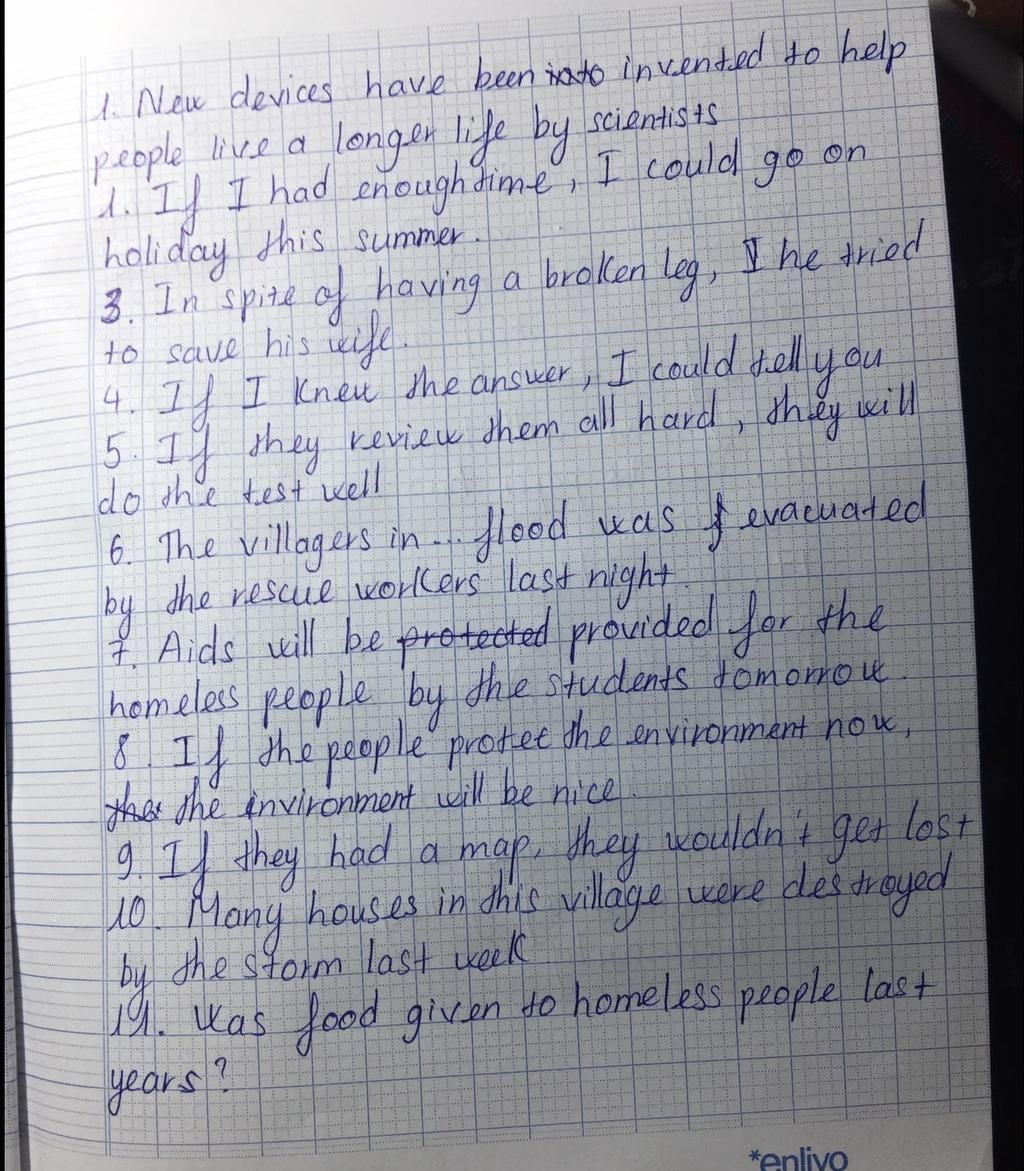 1. New devices have been into invented to help
people live a longer life by scientists
1. If I had enough time, I could go on
holiday this summer.
3. In spite of having a broken leg, I he tried
to save his wife.
4. If I knew the answer, I could tell you
5. If they review them all hard, they will
do the test well
6. The villagers in... flood was f evacuated
by the rescue workers last night.
7. Aids will be protected provided for the
homeless people by the students tomorrow.
8. If the people protec the environment now,
ther the invironment will be nice.
9. If they had a map, they wouldn't get lost
10. Many houses in this village were destroyed
by the storm last week
11. Was food given to homeless people last
years?
*enlivo